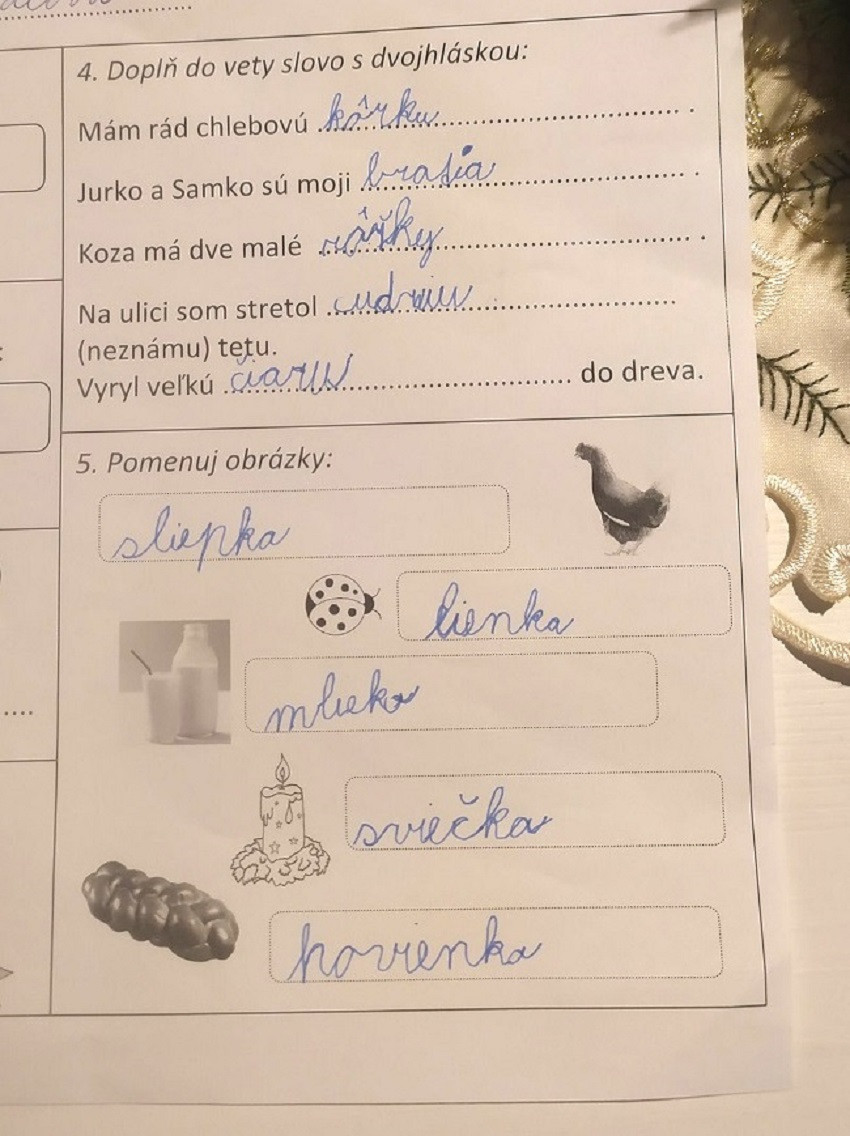 4. Doplň do vety slovo s dvojhláskou:
Mám rád chlebovú kôrku .
Jurko a Samko sú moji bratia .
Koza má dve malé rôžky .
Na ulici som stretol cudziu
(neznámu) tetu.
Vyryl veľkú čiaru do dreva.
5. Pomenuj obrázky:
sliepka
lienka
mlieko
sviečka
hovienka